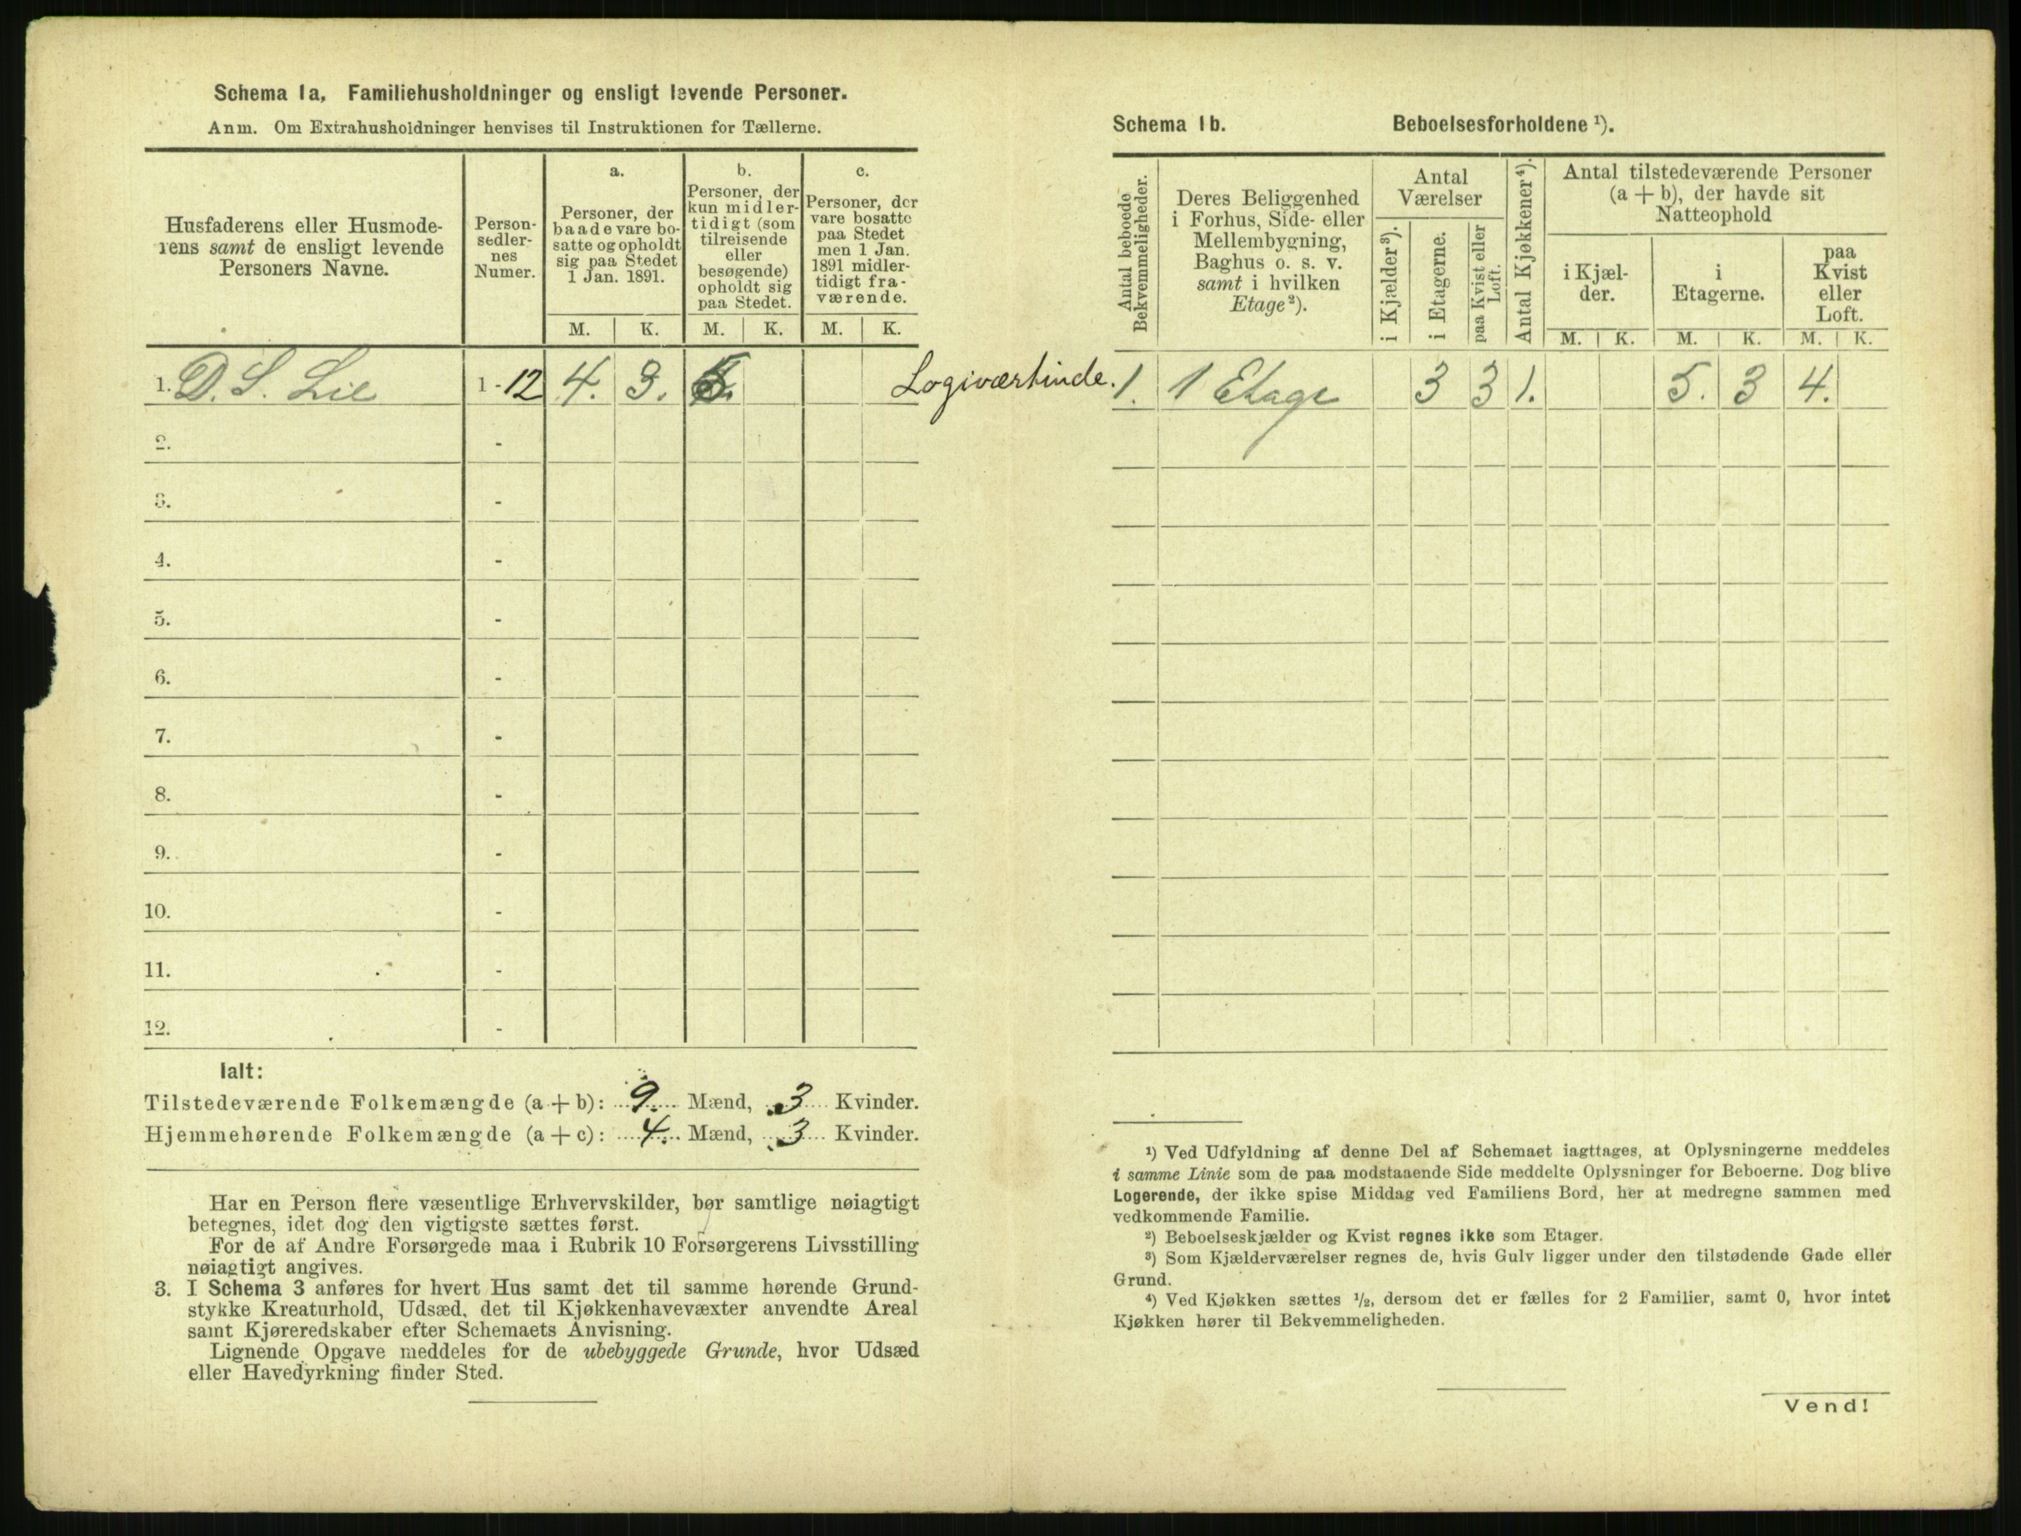 Schema 1a, Familiehusholdninger og ensligt levende Personer.
Anm. Om Extrahusholdninger henvises til Instruktionen for Tællerne.
Husfaderens eller Husmode-
rens samt de ensligt levende
Personers Navne.
Person-
sedler-
nes
Numer.
a.
Personer, der
baade vare bo-
satte og opholdt
sig paa Stedet
1 Jan. 1891.
b.
Personer, der
kun midler-
tidigt (som
tilreisende
eller
besøgende)
opholdt sig
paa Stedet.
c.
Personer, der
vare bosatte
paa Stedet
men 1 Jan.
1891 midler-
tidigt fra-
værende.
M. K. M. K. M. K.
1. D. S. Lie 1 - 12 4. 3. 5. Logiværtinde.
2. -
3. -
4. -
5. -
6. -
7. -
8. -
9. -
10. -
11. -
12. -
Ialt:
Tilstedeværende Folkemængde (a + b): 9. Mænd, 3 Kvinder.
Hjemmehørende Folkemængde (a + c): 4. Mænd, 3 Kvinder.
Har en Person flere væsentlige Erhvervskilder, bør samtlige nøiagtigt
betegnes, idet dog den vigtigste sættes først.
For de af Andre Forsørgede maa i Rubrik 10 Forsørgerens Livsstilling
nøiagtigt angives.
3. I Schema 3 anføres for hvert Hus samt det til samme hørende Grund-
stykke Kreaturhold, Udsæd, det til Kjøkkenhavevæxter anvendte Areal
samt Kjøreredskaber efter Schemaets Anvisning.
Lignende Opgave meddeles for de ubebyggede Grunde, hvor Udsæd
eller Havedyrkning finder Sted.
Schema 1b. Beboelsesforholdene ¹).
Antal beboede
Bekvemmeligheder.
Deres Beliggenhed
i Forhus, Side- eller
Mellembygning,
Baghus o. s. v.
samt i hvilken
Etage ²).
Antal
Værelser
i Kjælder ³).
i Etagerne.
paa Kvist eller
Loft.
Antal Kjøkkener ⁴).
Antal tilstedeværende Personer
(a + b), der havde sit
Natteophold
i Kjæl-
der.
i
Etagerne.
paa
Kvist
eller
Loft.
M. K. M. K. M. K.
1. 1 Etage 3 3 1. 5. 3 4.
¹) Ved Udfyldning af denne Del af Schemaet iagttages, at Oplysningerne meddeles
i samme Linie som de paa modstaaende Side meddelte Oplysninger for Beboerne. Dog blive
Logerende, der ikke spise Middag ved Familiens Bord, her at medregne sammen med
vedkommende Familie.
²) Beboelseskjælder og Kvist regnes ikke som Etager.
³) Som Kjælderværelser regnes de, hvis Gulv ligger under den tilstødende Gade eller
Grund.
⁴) Ved Kjøkken sættes ½, dersom det er fælles for 2 Familier, samt 0, hvor intet
Kjøkken hører til Bekvemmeligheden.
Vend!